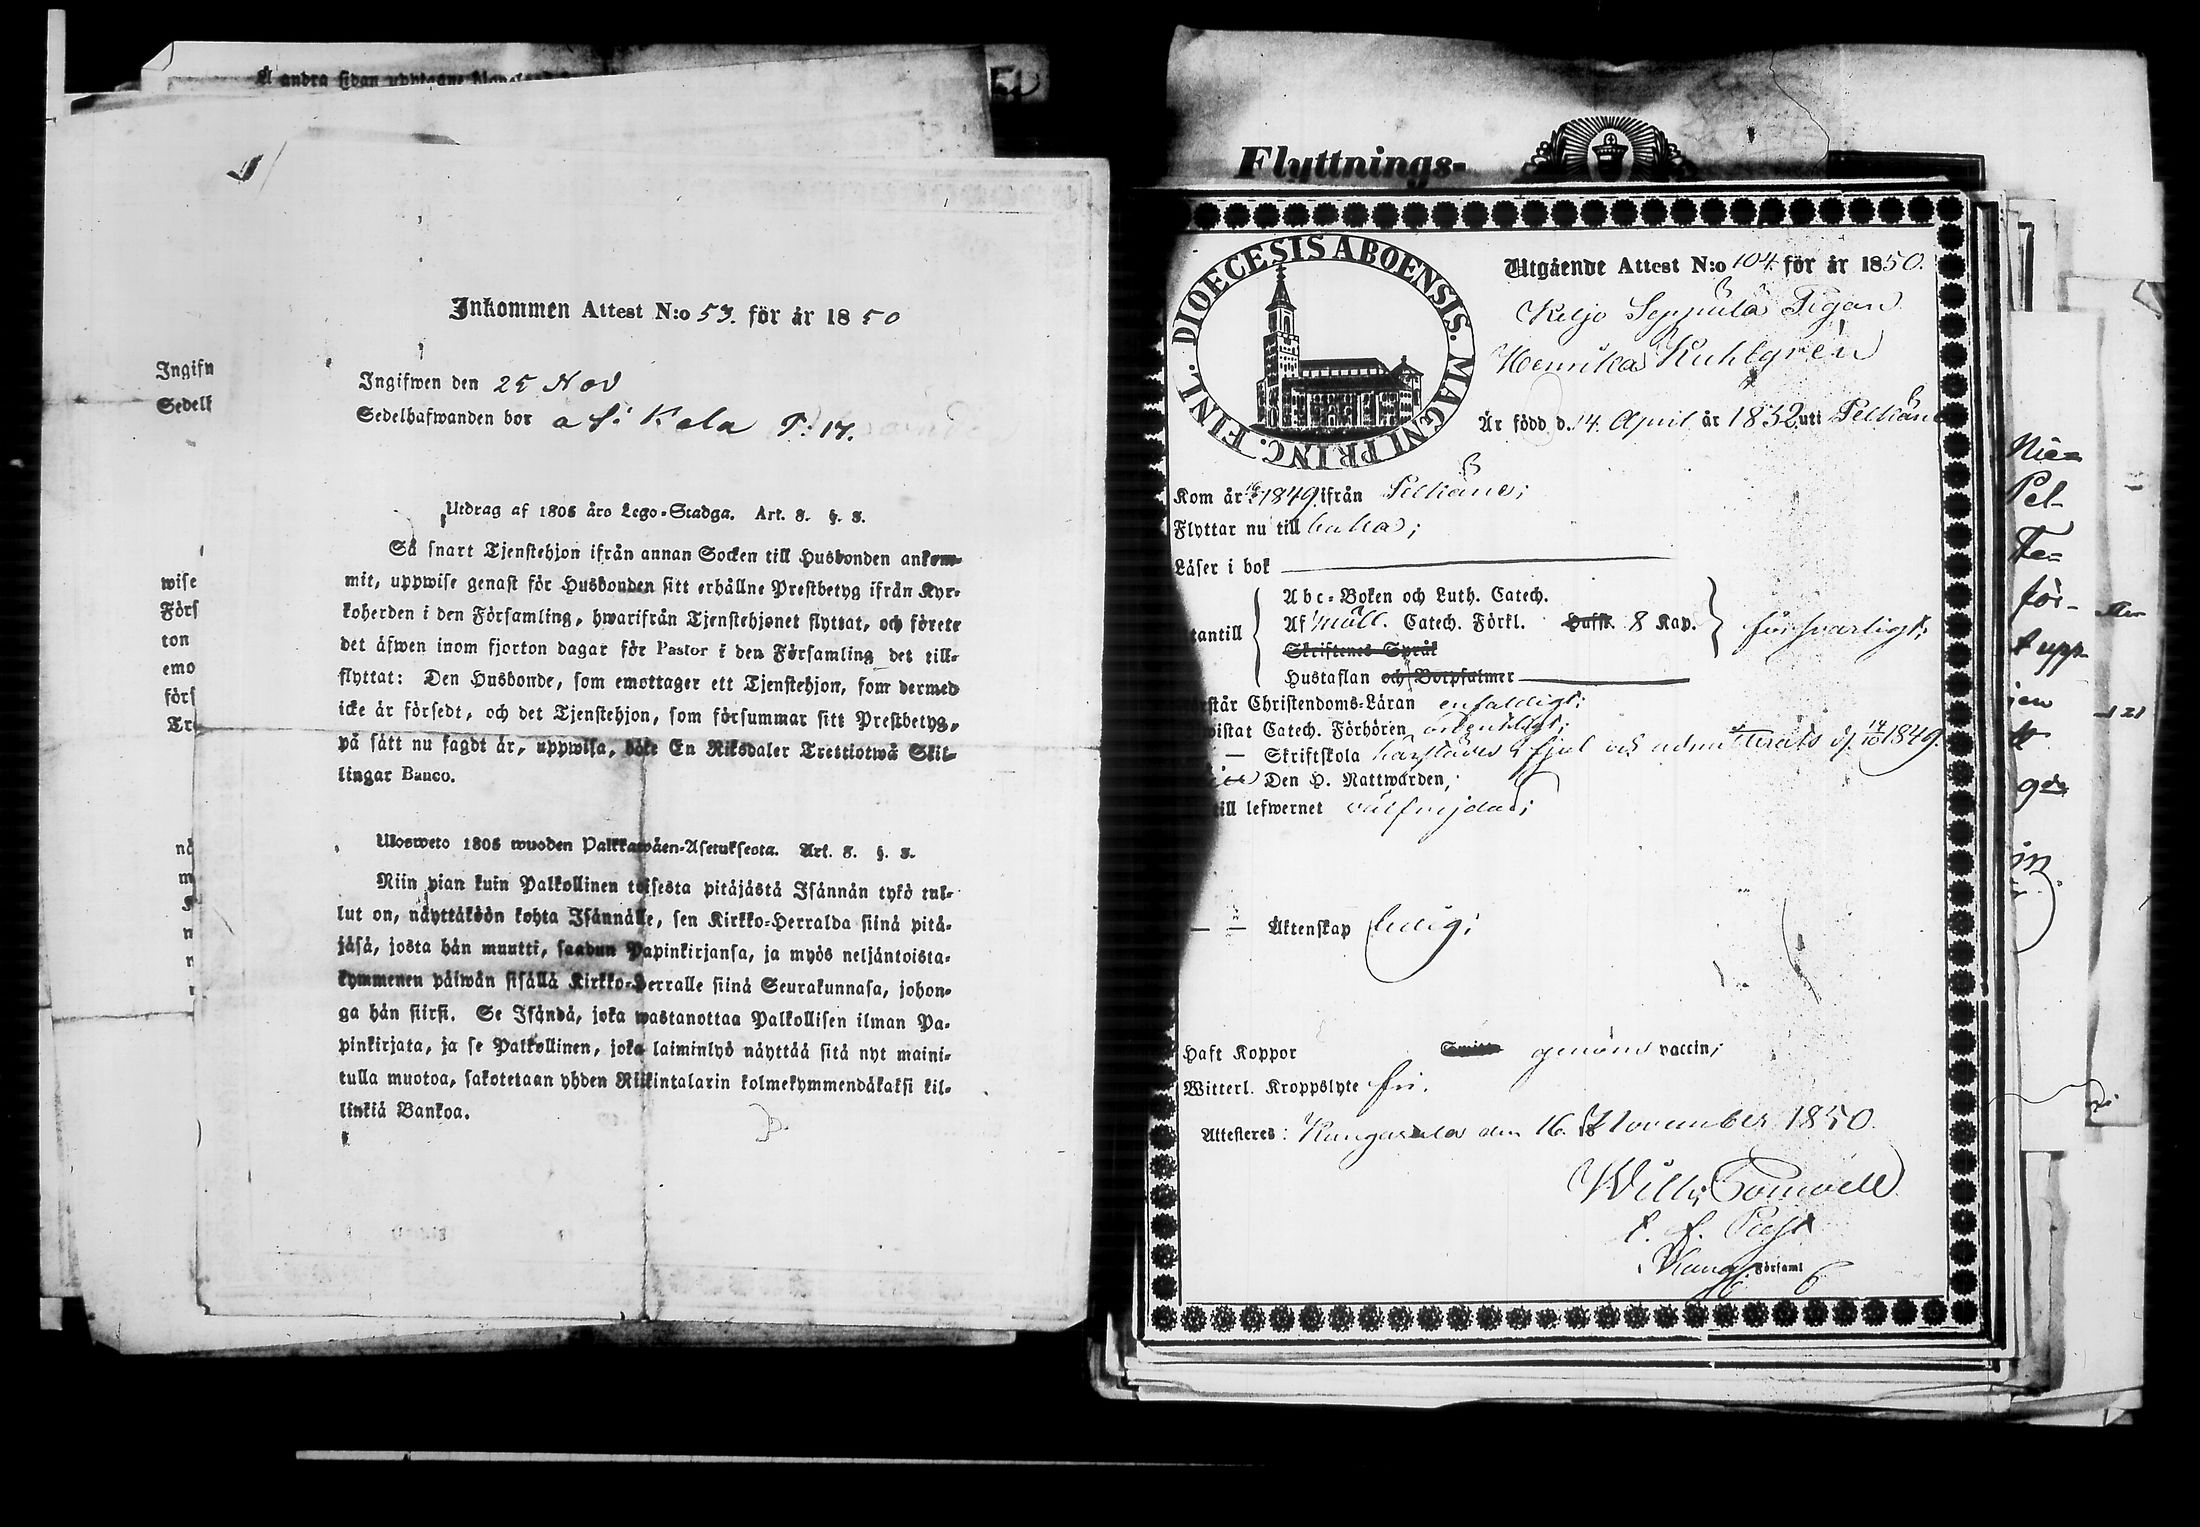 Å andra sidan
Inkommen Attest N:o 53. för år 1850
Ingifwen den 25 Nov
Sedelhafwanden bor af: Kala P: 17.
Utdrag af 1805 års Lego-Stadga. Art. 3. §. 3.
Så snart Tjenstehjon ifrån annan Socken till Husbonden ankom-
mit, uppwise genast för Husbonden sitt erhållne Prestbetyg ifrån Kyr-
koherden i den Församling, hwarifrån Tjenstehjonet flyttat, och förete
det äfwen inom fjorton dagar för Pastor i den Församling det till-
flyttat: Den Husbonde, som emottager ett Tjenstehjon, som dermed
icke är försedt, och det Tjenstehjon, som försummar sitt Prestbetyg,
på sätt nu sagdt är, uppwisa, böte En Riksdaler Trettiotwå Skil-
lingar Banco.
Ulosweto 1805 wuoden Palkkawäen-Asetuksesta. Art. 3. §. 3.
Niin pian kuin Palkollinen toisesta pitäjästä Isännän tykö tul-
lut on, näyttäköön kohta Isännälle, sen Kirkko-Herralda siinä pitä-
jäsä, josta hän muutti, saadun Papinkirjansa, ja myös neljäntoista-
kymmenen päiwän sisällä Kirkko-Herralle siinä Seurakunnasa, johon-
ga hän siirsi. Se Isändä, joka wastanottaa Palkollisen ilman Pa-
pinkirjata, ja se Palkollinen, joka laiminlyö näyttää sitä nyt maini-
tulla muotoa, sakotetaan yhden Riikintalarin kolmekymmendäkaksi kil-
linkiä Bankoa.
Ingifw
Sedelh
wise
Förs
ton
emo
förs
Tre
Flyttnings-
DIOECESIS ABOENSIS. MAGNI PRINC. FINL.
Utgående Attest N:o 104 för år 1850.
Keljo Seppälä Pigan
Henrika Kuhlgrén
Är född d. 14. April år 1832 uti Pelkäne
Kom år 1849 ifrån Pelkäne;
Flyttar nu till baka;
Läser i bok
tantill
Abc-Boken och Luth. Catech.
Af Möll. Catech. Förkl. Haft. 8 Kap. försvarligt;
Skriftenes Språk
Hustaflan och Botpsalmer
står Christendoms-Läran enfaldigt;
wistat Catech. Förhören ordentligt;
— Skriftskola härstädes och admitterats d. 14/10 1849.
Den H. Nattwarden;
till lefwernet välfrejdad;
— — Äktenskap ledig;
Haft Koppor genom vaccin;
Witterl. Kroppslyte fri.
Attesteres: Kangasala den 16 November 1850.
Församl
Nie=
Pel-
för-
t upp